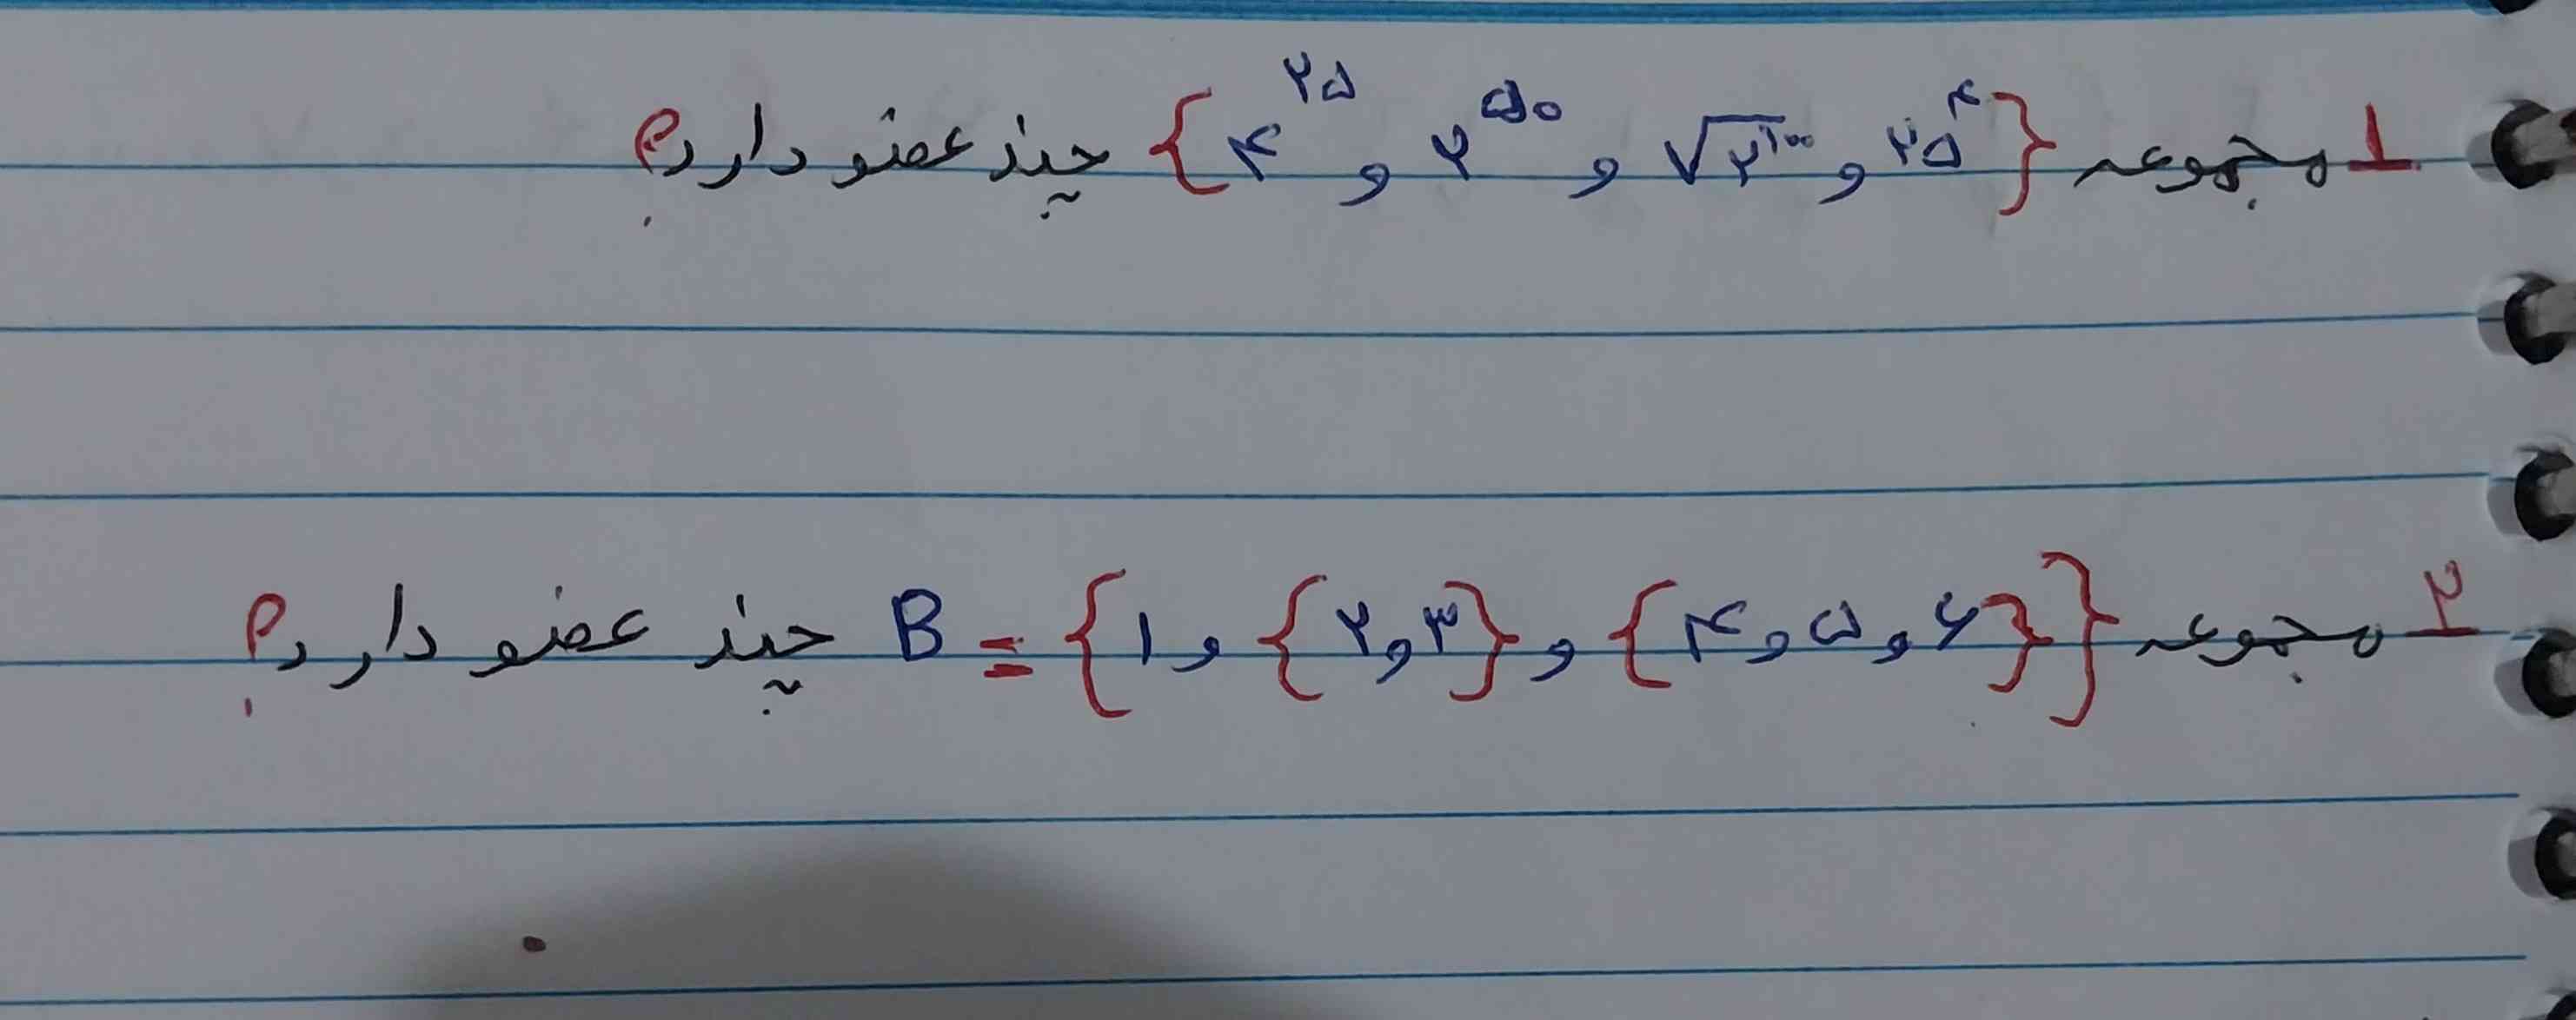 ۱ مجموعه {۴^۲۵ و ۲^۵۰ و √۲^۱۰۰ و ۲۵^۴} چند عضو دارد؟
۲ مجموعه B = {۱ و {۲و۳} و {۴و۵و۶}} چند عضو دارد؟